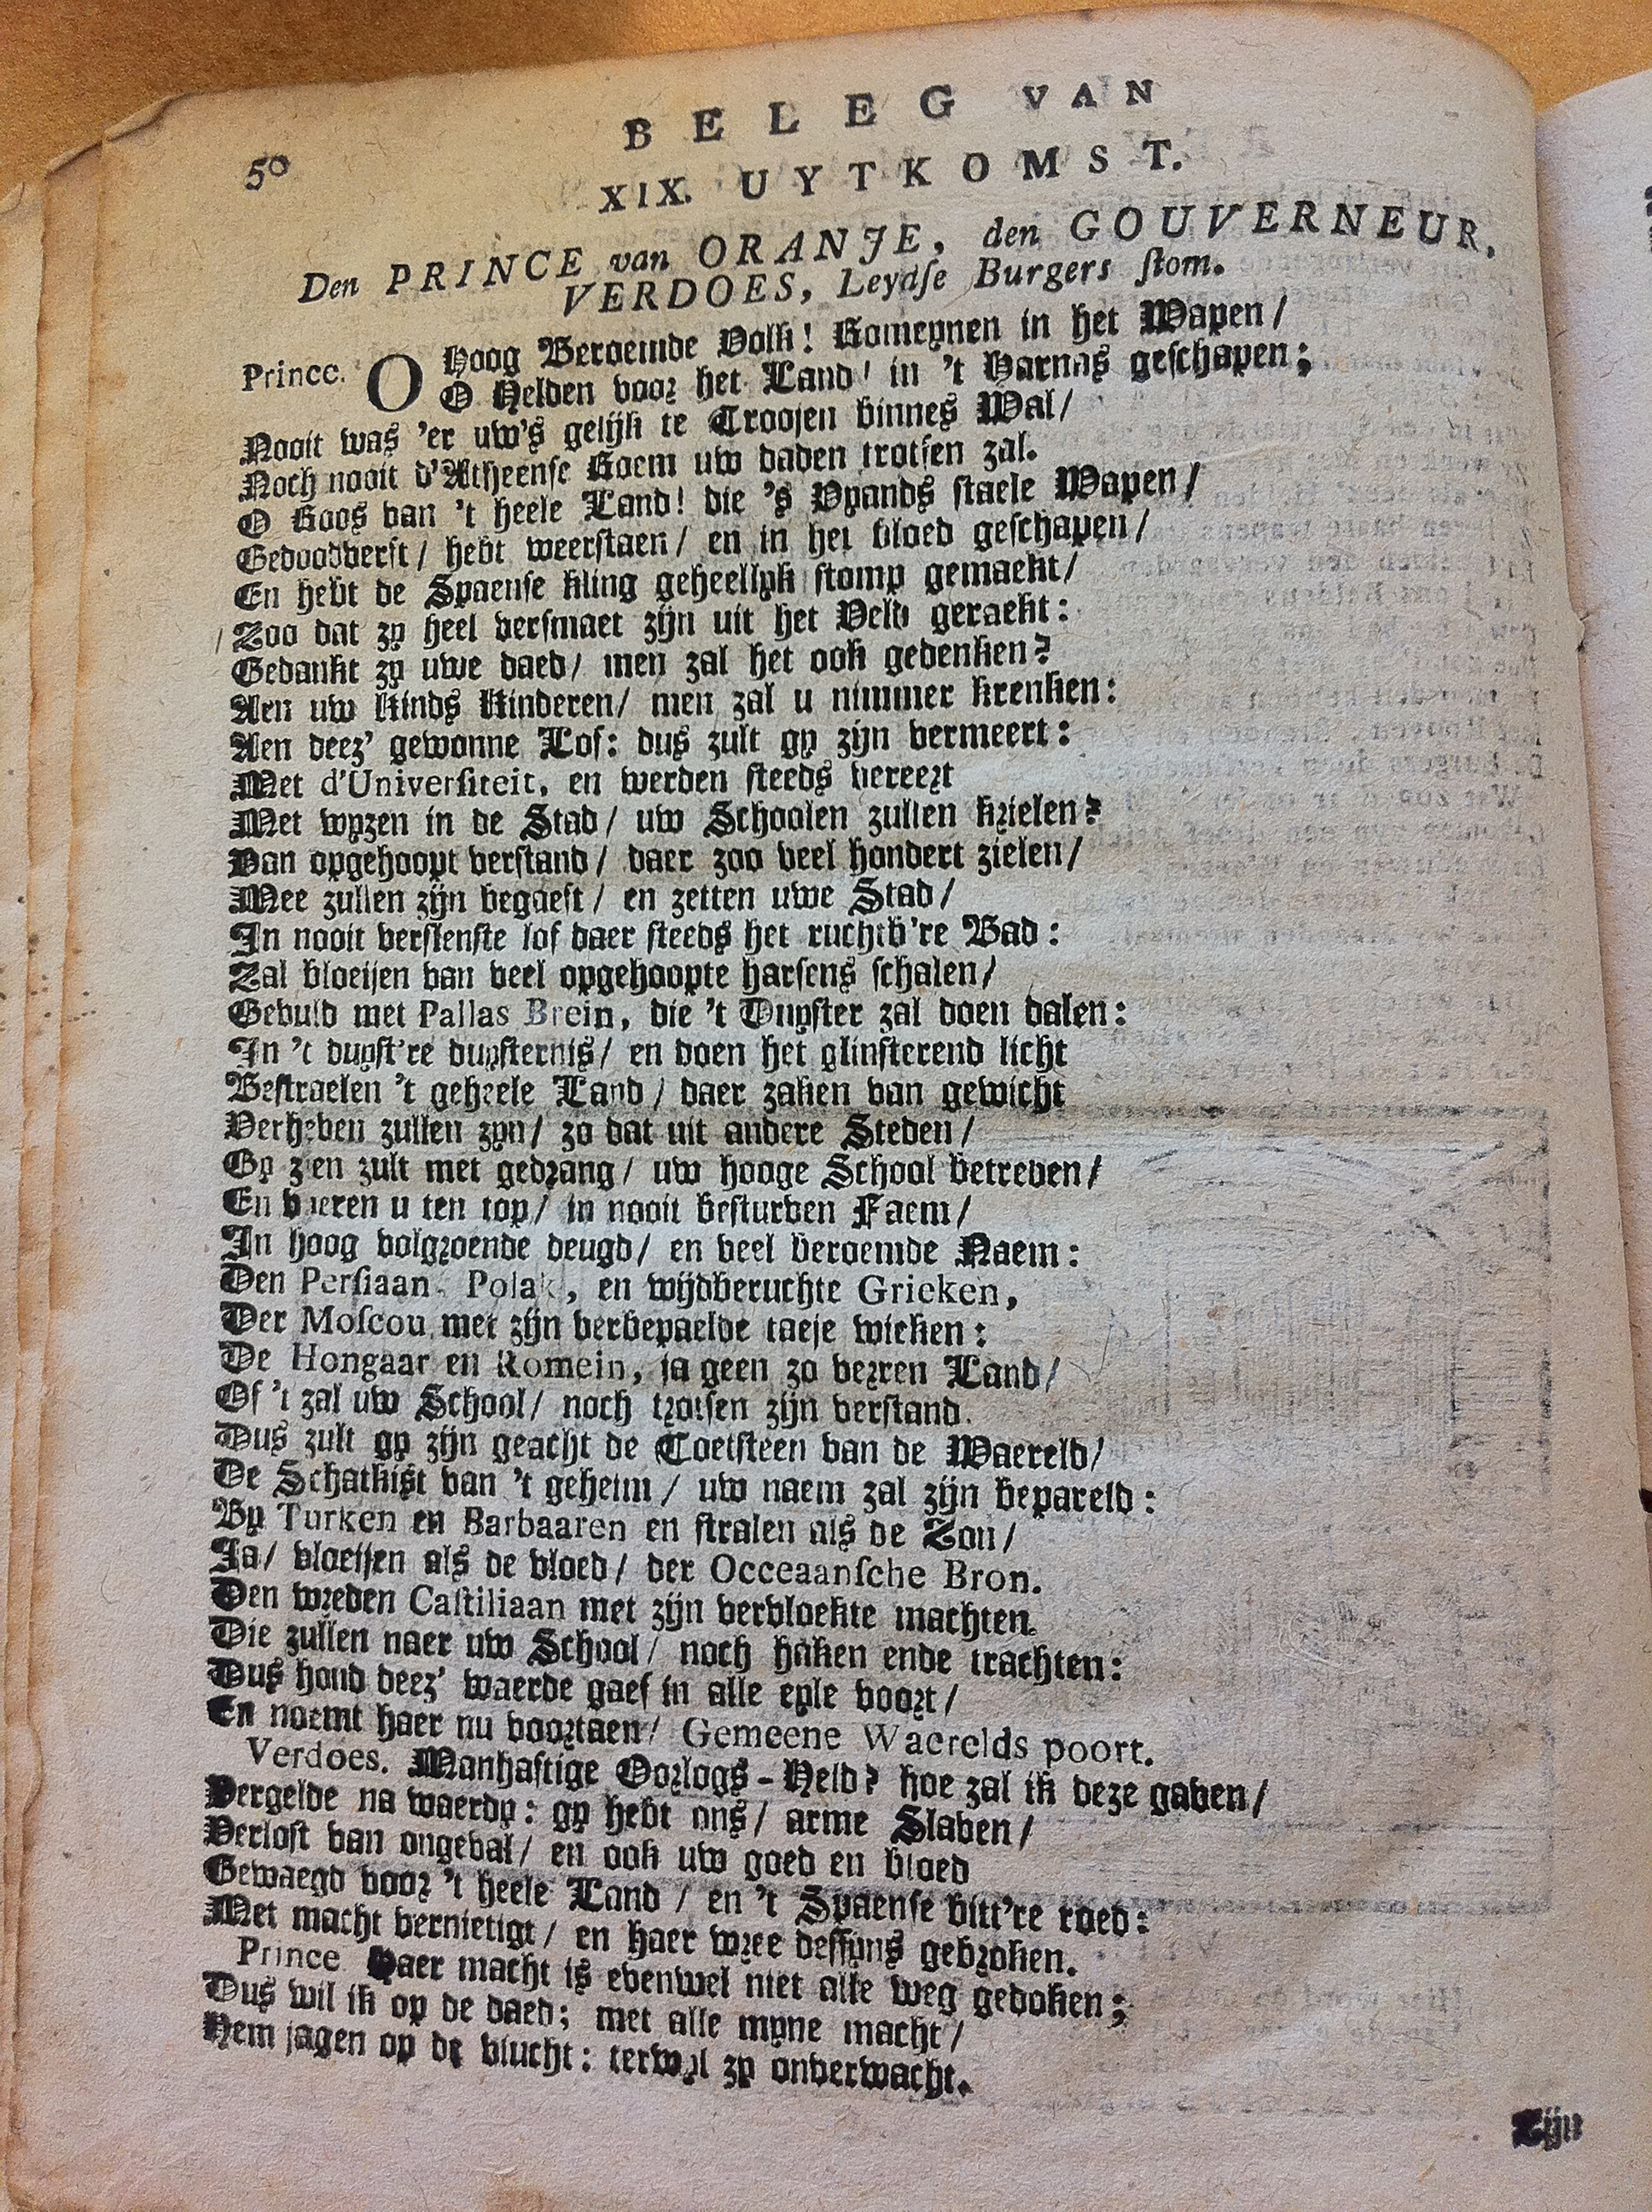 50
BELEG VAN
XIX. UYTKOMST.
Den PRINCE van ORANJE, den GOUVERNEUR,
VERDOES, Leydſe Burgers ſtom.
Prince. O Hoog Beroemde Volk! Romeynen in het Wapen /
O Helden voor het Land! in 't Harnas geſchapen;
Nooit was 'er uw's gelijk te Troojen binnes Wal /
Noch nooit d'Atheenſe Roem uw daden trotſen zal.
O Roos van 't heele Land! die 's Vyands ſtaele Wapen /
Gedoodverft / hebt weerſtaen / en in het bloed geſchapen /
En hebt de Spaenſe kling geheellyk ſtomp gemaekt /
Zoo dat zy heel verſmaet zijn uit het Veld geraekt:
Gedankt zy uwe daed / men zal het ook gedenken?
Aen uw Kinds Kinderen / men zal u nimmer krenken:
Aen deez' gewonne Lof: dus zult gy zijn vermeert:
Met d'Univerſiteit, en werden ſteeds vereert
Met wyzen in de Stad / uw Schoolen zullen krielen?
Van opgehoopt verſtand / daer zoo veel hondert zielen /
Mee zullen zijn begaeft / en zetten uwe Stad /
In nooit verſlenſte lof daer ſteeds het ruchtb're Bad:
Zal bloeijen van veel opgehoopte harſens ſchalen /
Gevuld met Pallas Brein, die 't Duyſter zal doen dalen:
In 't duyſt're duyſternis / en doen het glinſterend licht
Beſtraelen 't geheele Land / daer zaken van gewicht
Verheven zullen zyn / zo dat uit andere Steden /
Gy zien zult met gedrang / uw hooge School betreden /
En voeren u ten top / in nooit beſturven Faem /
In hoog volgroende deugd / en veel beroemde Naem:
Den Perſiaan, Polak, en wijdberuchte Grieken,
Der Moſcou, met zijn verbepaelde taeje wieken:
De Hongaar en Romein, ja geen zo verren Land /
Of 't zal uw School / noch trotſen zijn verſtand.
Dus zult gy zijn geacht de Toetſteen van de Waereld /
De Schatkiſt van 't geheim / uw naem zal zijn bepareld:
By Turken en Barbaaren en ſtralen als de Zon /
Ja / vloeijen als de vloed / der Occeaanſche Bron.
Den wreden Caſtiliaan met zijn vervloekte machten.
Die zullen naer uw School / noch haken ende trachten:
Dus houd deez' waerde gaef in alle eyle voort /
En noemt haer nu voortaen / Gemeene Waerelds poort.
Verdoes. Manhaftige Oorlogs-Held? hoe zal ik deze gaven /
Vergelde na waerdy: gy hebt ons / arme Slaven /
Verloſt van ongeval / en ook uw goed en bloed
Gewaegd voor 't heele Land / en 't Spaenſe bitt're roed:
Met macht vernietigt / en haer wree deſſyns gebroken.
Prince. Haer macht is evenwel niet alle weg gedoken;
Dus wil ik op de daed; met alle myne macht /
Hem jagen op de vlucht: terwyl zy onverwacht.
Zijn